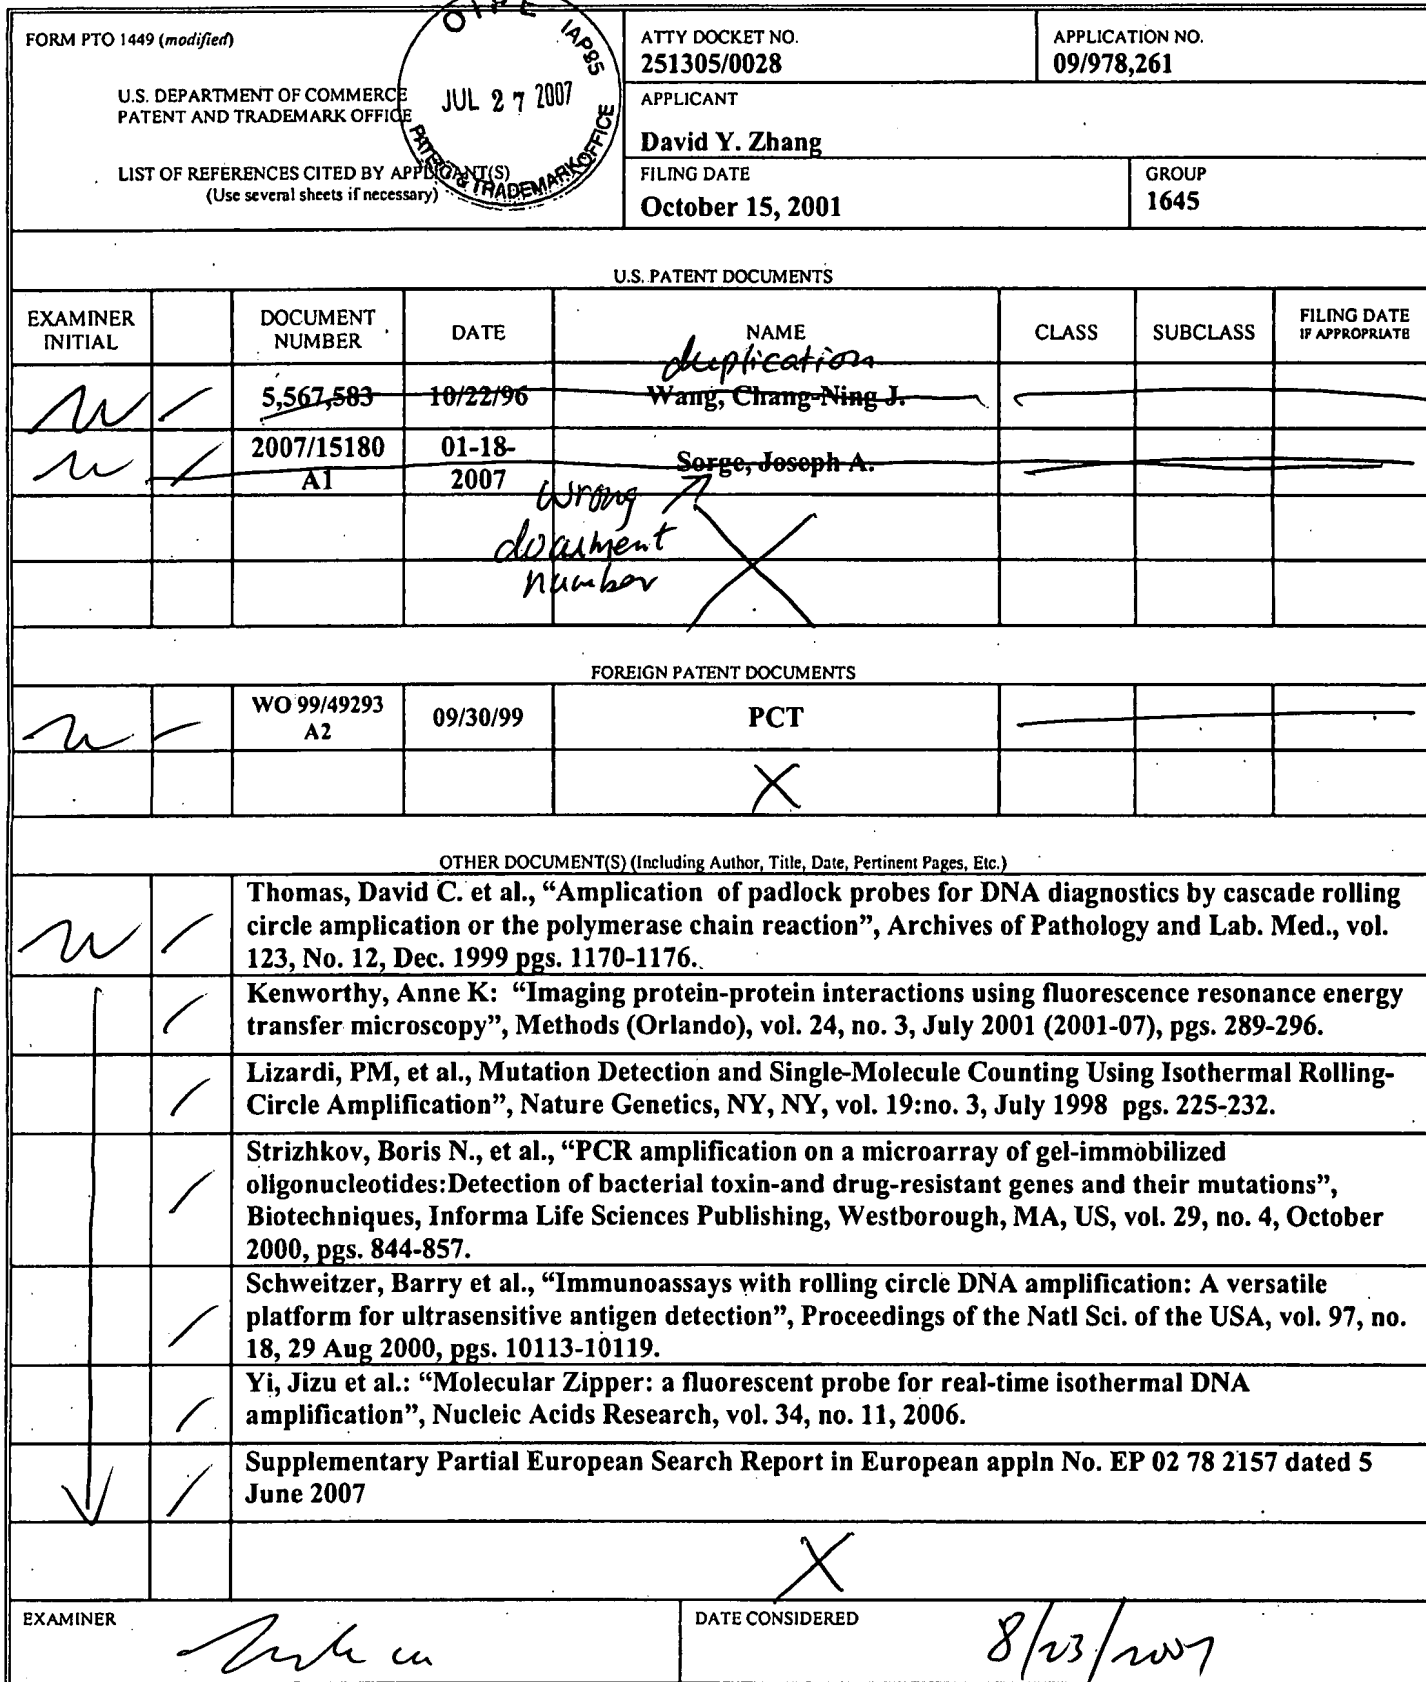 FORM PTO 1449 (modified)
U.S. DEPARTMENT OF COMMERCE
PATENT AND TRADEMARK OFFICE
LIST OF REFERENCES CITED BY APPLICANT(S)
(Use several sheets if necessary)
OIPE IAP85
JUL 27 2007
PATENT & TRADEMARK OFFICE
ATTY DOCKET NO.
251305/0028
APPLICATION NO.
09/978,261
APPLICANT
David Y. Zhang
FILING DATE
October 15, 2001
GROUP
1645
U.S. PATENT DOCUMENTS
EXAMINER INITIAL
DOCUMENT NUMBER
DATE
NAME
CLASS
SUBCLASS
FILING DATE IF APPROPRIATE
duplication
5,567,583 10/22/96 Wang, Chang-Ning J.
2007/15180 A1 01-18-2007 Sorge, Joseph A.
wrong
document
number
FOREIGN PATENT DOCUMENTS
WO 99/49293 A2 09/30/99 PCT
OTHER DOCUMENT(S) (Including Author, Title, Date, Pertinent Pages, Etc.)
Thomas, David C. et al., “Amplication of padlock probes for DNA diagnostics by cascade rolling
circle amplication or the polymerase chain reaction”, Archives of Pathology and Lab. Med., vol.
123, No. 12, Dec. 1999 pgs. 1170-1176.
Kenworthy, Anne K: “Imaging protein-protein interactions using fluorescence resonance energy
transfer microscopy”, Methods (Orlando), vol. 24, no. 3, July 2001 (2001-07), pgs. 289-296.
Lizardi, PM, et al., Mutation Detection and Single-Molecule Counting Using Isothermal Rolling-
Circle Amplification”, Nature Genetics, NY, NY, vol. 19:no. 3, July 1998 pgs. 225-232.
Strizhkov, Boris N., et al., “PCR amplification on a microarray of gel-immobilized
oligonucleotides:Detection of bacterial toxin-and drug-resistant genes and their mutations”,
Biotechniques, Informa Life Sciences Publishing, Westborough, MA, US, vol. 29, no. 4, October
2000, pgs. 844-857.
Schweitzer, Barry et al., “Immunoassays with rolling circle DNA amplification: A versatile
platform for ultrasensitive antigen detection”, Proceedings of the Natl Sci. of the USA, vol. 97, no.
18, 29 Aug 2000, pgs. 10113-10119.
Yi, Jizu et al.: “Molecular Zipper: a fluorescent probe for real-time isothermal DNA
amplification”, Nucleic Acids Research, vol. 34, no. 11, 2006.
Supplementary Partial European Search Report in European appln No. EP 02 78 2157 dated 5
June 2007
EXAMINER
DATE CONSIDERED
8/23/2007